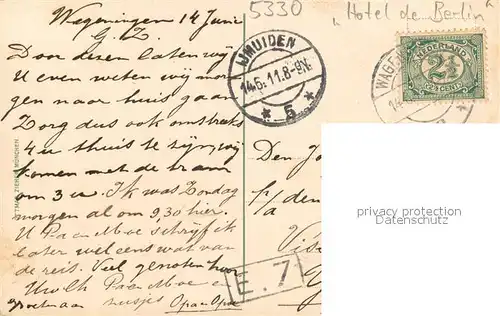 Wageningen 14 Juni
G. Z.
Door deze laten wij
U even weten wij mor
gen naar huis gaan
Zorg dus ook omstreeks
4 u thuis te zijn, wij
komen met de tram
om 3 u. Ik was Zondag
morgen al om 9,30 hier.
U Pa en Moe schrijf ik
later wel eens wat van
de reis. Veel genoten hier
Pa en Moe en
Opa en Opoe
5330
"Hotel de Berlin"
IJMUIDEN
14.6.11.8-9N.
* 5 *
WAGE
NEDERLAND
2½
2½ CENT
Den
f/d
a
Vis
E. 7
privacy protection
Datenschutz
MÜNCHEN